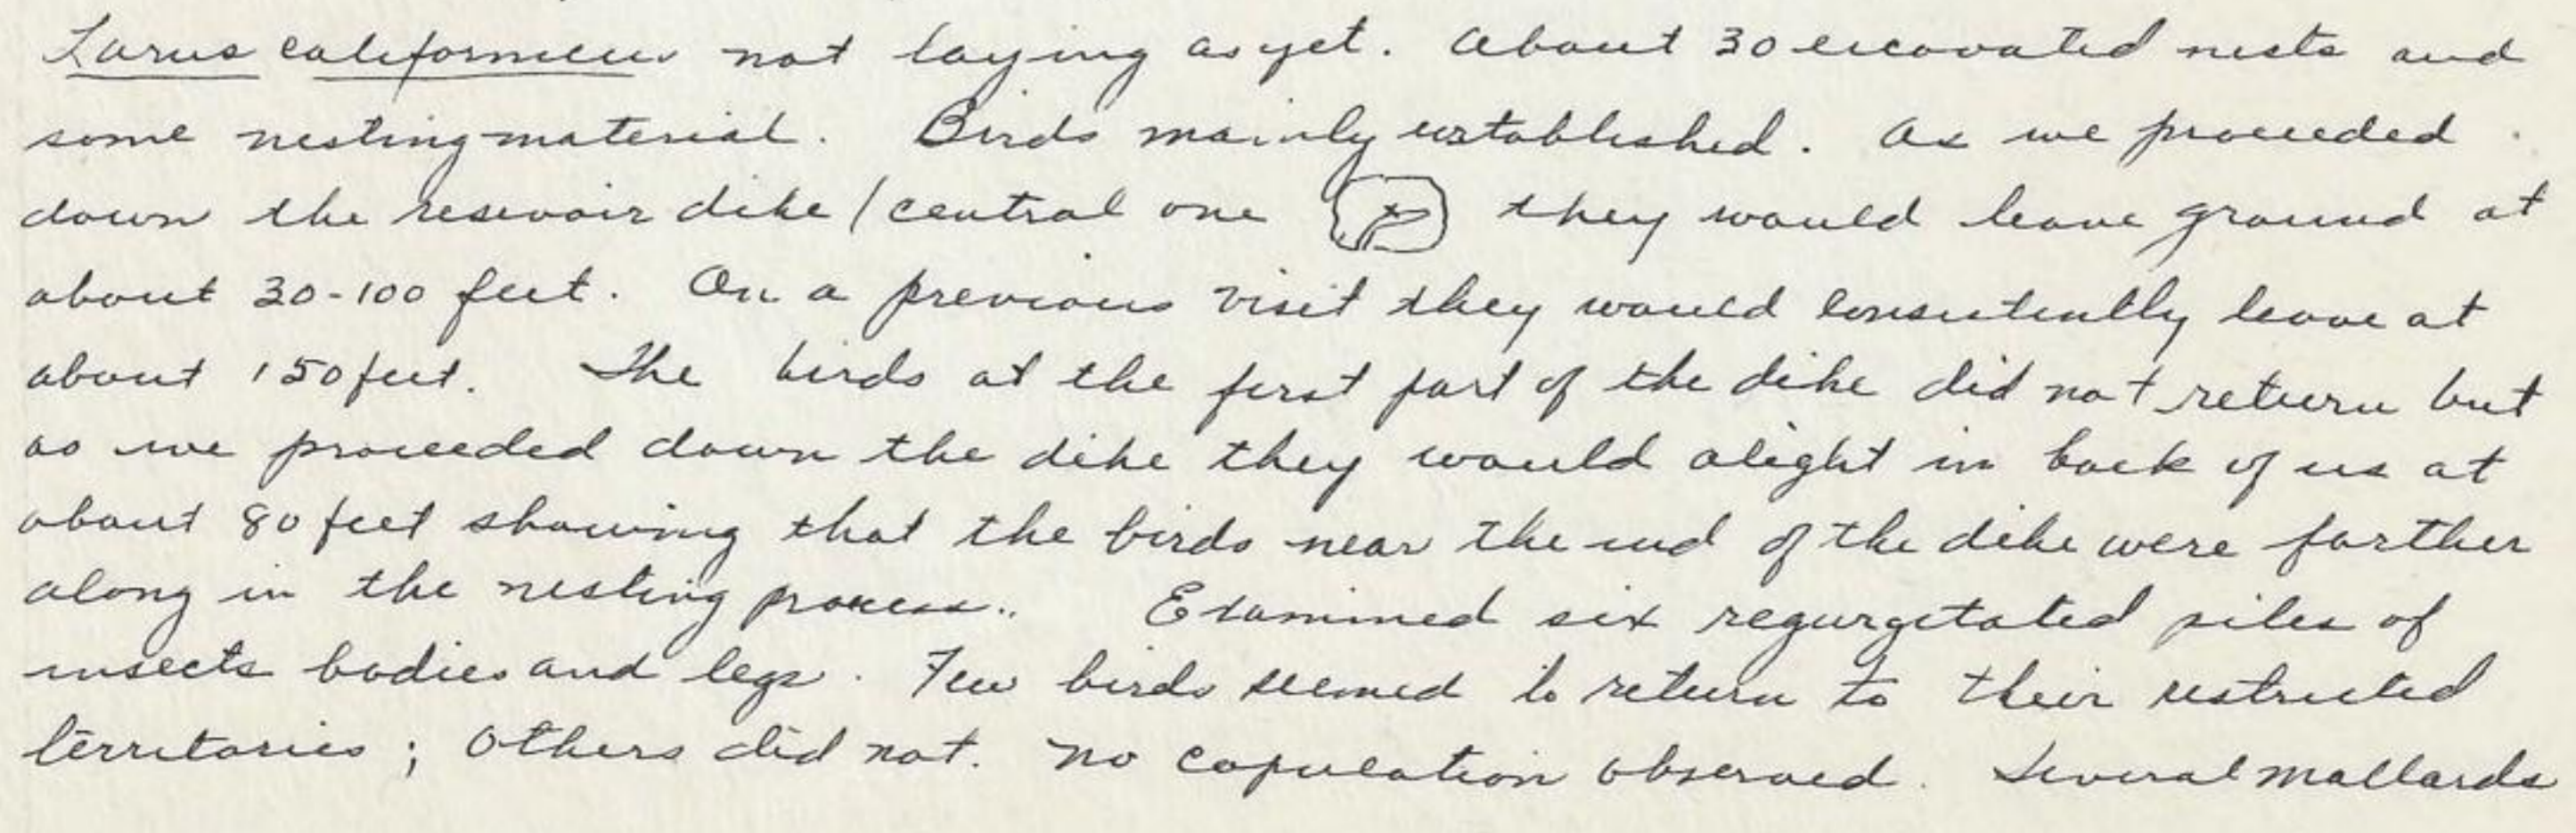 Larus californicus not laying as yet. About 30 excavated nests and
some nesting material. Birds mainly established. As we proceeded
down the resevoir dike (central one they would leave ground at
about 30-100 feet. On a previous visit they would consistently leave at
about 150 feet. The birds at the first part of the dike did not return but
as we proceeded down the dike they would alight in back of us at
about 80 feet showing that the birds near the end of the dike were farther
along in the nesting process.. Examined six regurgetated piles of
insects bodies and legs. Few birds seemed to return to their restricted
territories; others did not. No copulation observed. Several mallards